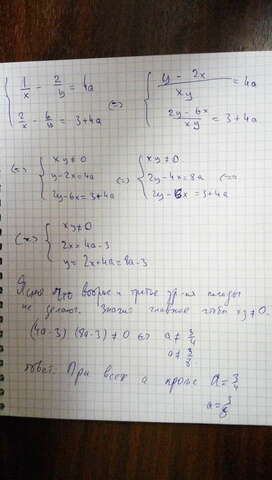 { 1/x - 2/y = 4a
2/x - 6/y = 3+4a
(=) { (y - 2x)/xy = 4a
(2y - 6x)/xy = 3+4a
(=) { xy ≠ 0
y-2x=4a
2y-6x=3+4a
(=) { xy ≠ 0
2y-4x=8a
2y-6x=3+4a
(=)
(=) { xy ≠ 0
2x=4a-3
y=2x+4a=8a-3
что второе и третье ур-ия погоды
не делают. Значит главное чтобы xy≠0.
(4a-3)(8a-3)≠0 a≠3/4
a≠3/8
Ответ. При всех a кроме a=3/4
a=3/8